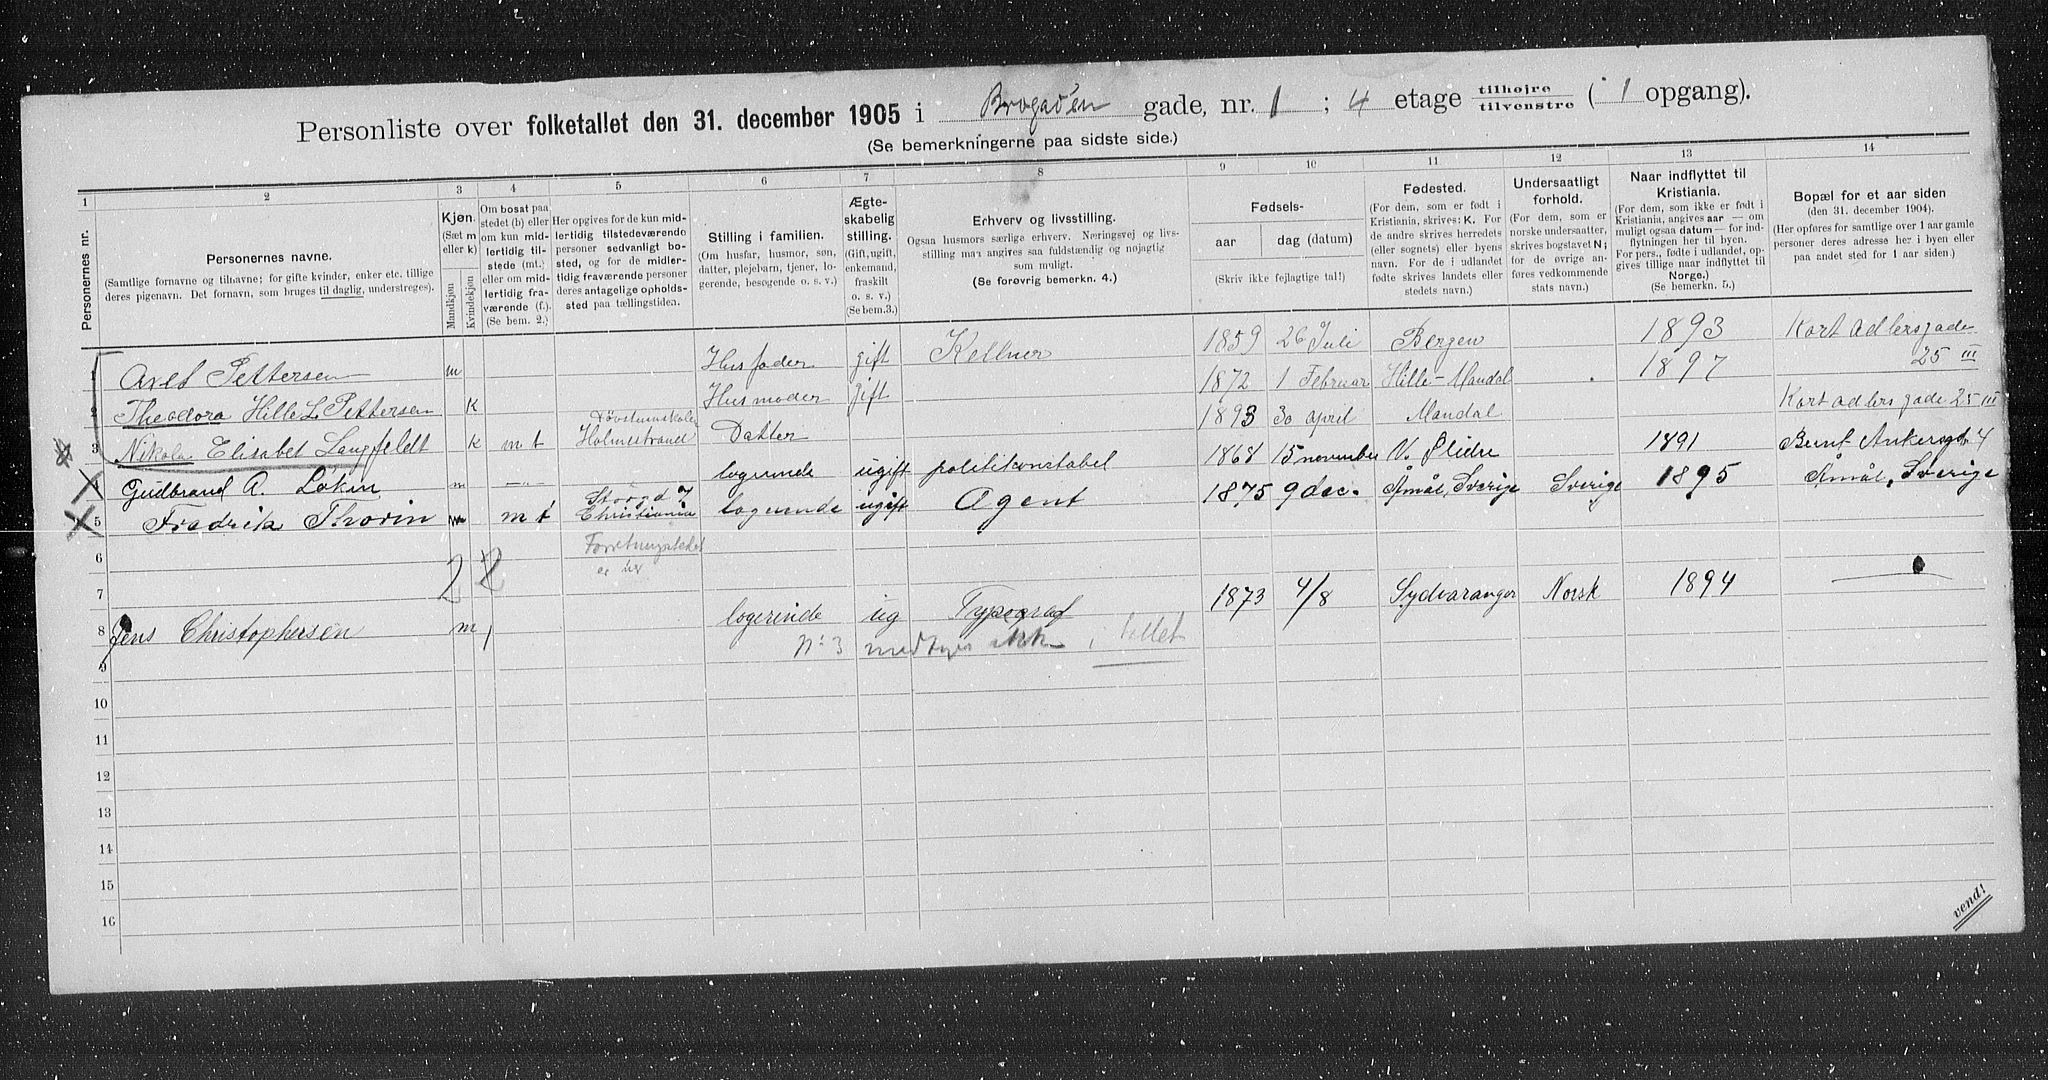 Personliste over folketallet den 31. december 1905 i Brogaden gade, nr. 1 ; 4 etage tilhøjre tilvenstre ( 1 opgang).
(Se bemerkningerne paa sidste side.)
1 2 3 4 5 6 7 8 9 10 11 12 13 14
Personernes nr.
Personernes navne.
(Samtlige fornavne og tilnavne; for gifte kvinder, enker etc. tillige
deres pigenavn. Det fornavn, som bruges til daglig, understreges).
Kjøn.
(Sæt m
eller k)
Mandkjøn
Kvindekjøn
Om bosat paa
stedet (b) eller
om kun midlertidig tilstede (mt.)
eller om midlertidig fraværende (f.).
(Se bem. 2.)
Her opgives for de kun midlertidig tilstedeværende
personer sedvanligt bosted, og for de midlertidig fraværende personer
deres antagelige opholdssted paa tællingstiden.
Stilling i familien.
(Om husfar, husmor, søn,
datter, plejebarn, tjener, logerende, besøgende o. s. v.)
Ægteskabelig
stilling.
(Gift, ugift,
enkemand,
fraskilt
o. s. v.)
(Se bem.3.)
Erhverv og livsstilling.
Ogsaa husmors særlige erhverv. Næringsvej og livsstilling maa angives saa fuldstændig og nøjagtig
som muligt.
(Se forøvrig bemerkn. 4.)
Fødsels-
aar dag (datum)
(Skriv ikke fejlagtige tal!)
Fødested.
(For dem, som er født i
Kristiania, skrives: K. For
de andre skrives herredets
(eller sognets) eller byens
navn. For de i udlandet
fødte skrives landets eller
stedets navn.)
Undersaatligt
forhold.
(For dem, som er
norske undersaatter,
skrives bogstavet N;
for de øvrige angives vedkommende
stats navn.)
Naar indflyttet til
Kristiania.
(For dem, som ikke er født i
Kristiania, angives aar — om
muligt ogsaa datum — for indflytningen her til byen.
For pers., fødte i udlandet, opgives tillige naar indflyttet til
Norge.)
(Se bemerkn. 5.)
Bopæl for et aar siden
(den 31. december 1904).
(Her opføres for samtlige over 1 aar gamle
personer deres adresse her i byen eller
paa andet sted for 1 aar siden.)
1 Axel Pettersen m Husfader gift Kellner 1859 26 Juli Bergen 1893 Kort Adlersgade 25 III
2 Theodora Hille L. Pettersen k Husmoder gift 1872 1 Februar Hille - Mandal 1897
3 Nikola Elisabet Langfeldt k m t Døvstumskolen Holmestrand Datter 1893 30 April Mandal Kort Adlers gade 25 III
4 Gudbrand A. Lökin m —"— logerende ugift politikonstabel 1868 15 november V. Slidre 1891 Bernt Ankersgd. 4
5 Fredrik Thorin m m t Storgd 7 Christiania logerende ugift Agent 1875 9 dec. Åmål, Sverige Sverige 1895 Åmål, Sverige
6 Forretningsstedet er her
7 2 2
8 Jens Christophersen m 1 logerende ug Typograf 1873 4/8 Sydvaranger Norsk 1894
No 3 medtages ikke i tallet
9
10
11
12
13
14
15
16
vend!